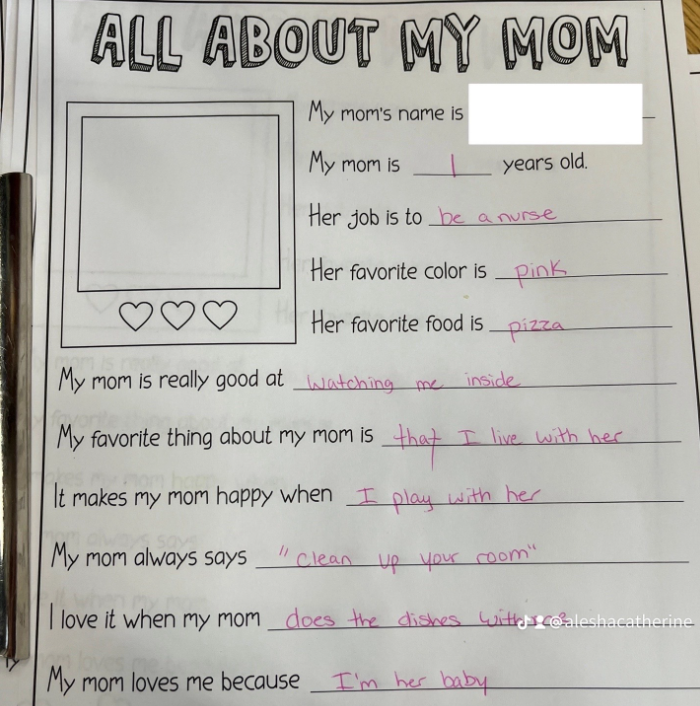 ALL ABOUT MY MOM
My mom's name is
My mom is 1 years old.
Her job is to be a nurse
Her favorite color is pink
Her favorite food is pizza
My mom is really good at watching me inside
My favorite thing about my mom is that I live with her
It makes my mom happy when I play with her
My mom always says "clean up your room"
I love it when my mom does the dishes with
@aleshacatherine
My mom loves me because I'm her baby